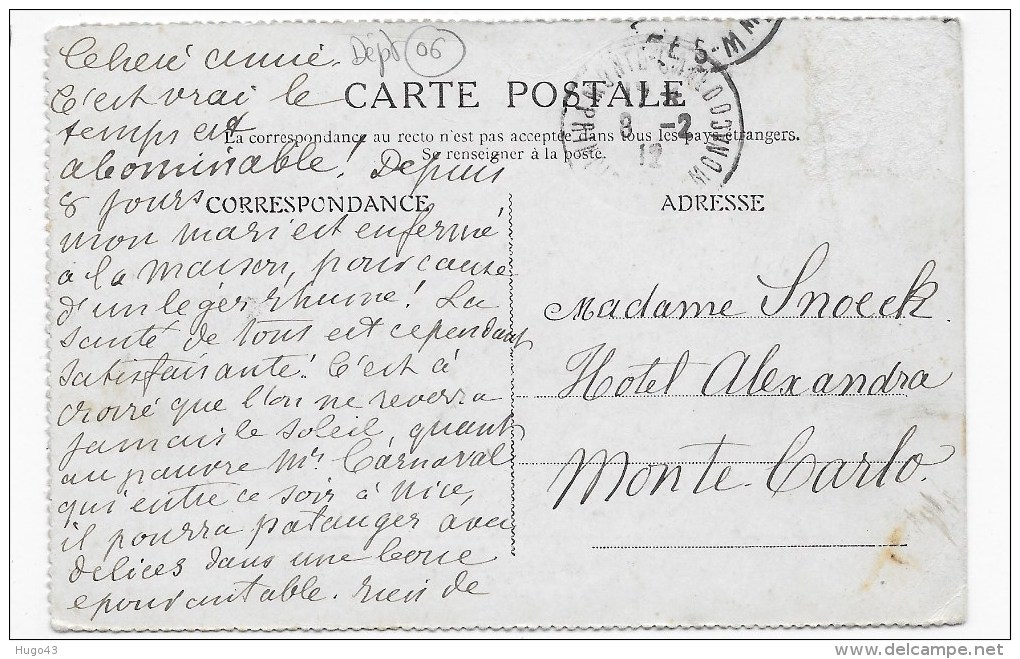 Dépt 06
CARTE POSTALE
La correspondance au recto n'est pas acceptée dans tous les pays étrangers.
Se renseigner à la poste.
8 -2
12
CORRESPONDANCE
ADRESSE
Cheré amie.
C'est vrai le
temps est
abominable! Depuis
8 jours
mon mari est enfermé
à la maison, pour cause
d'un léger rhume! La
santé de tous est cependant
satisfaisante! C'est à
croire que l'on ne reverra
jamais le soleil, quant
au pauvre Mr Carnaval
qui entre ce soir à Nice,
il pourra patauger avec
délices dans une boue
epouvantable. rien de
Madame Snoeck
Hotel Alexandra
Monte-Carlo.
Hugo43
delcampe.net